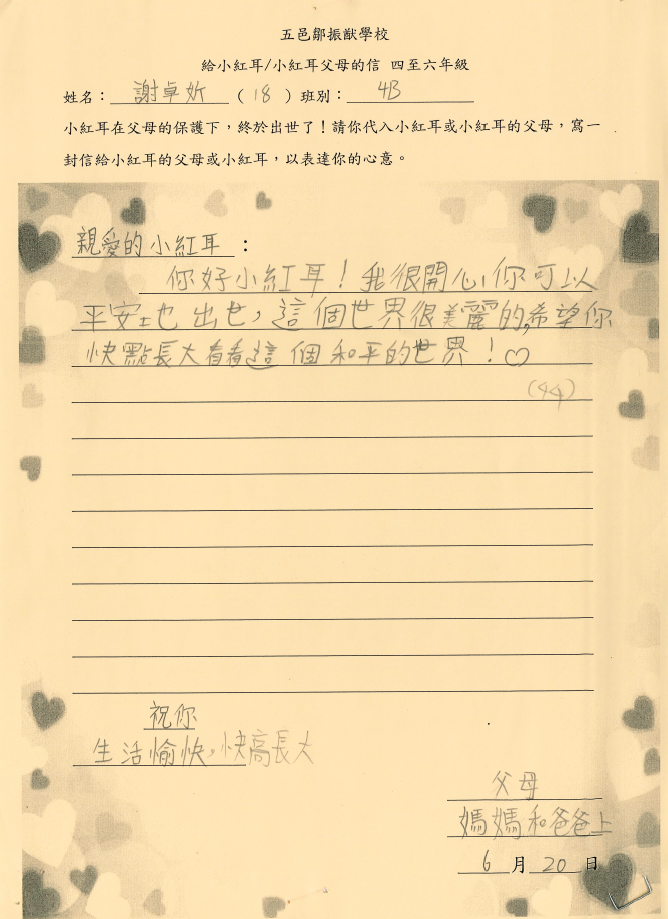 五邑鄒振猷學校
給小紅耳/小紅耳父母的信 四至六年級
姓名：謝卓妡（18）班別：4B
小紅耳在父母的保護下，終於出世了！請你代入小紅耳或小紅耳的父母，寫一
封信給小紅耳的父母或小紅耳，以表達你的心意。
親愛的小紅耳：
你好小紅耳！我很開心你可以
平安地出世，這個世界很美麗的,希望你
快點長大看看這個和平的世界！♡
(44)
祝你
生活愉快，快高長大
父母
媽媽和爸爸上
6月20日